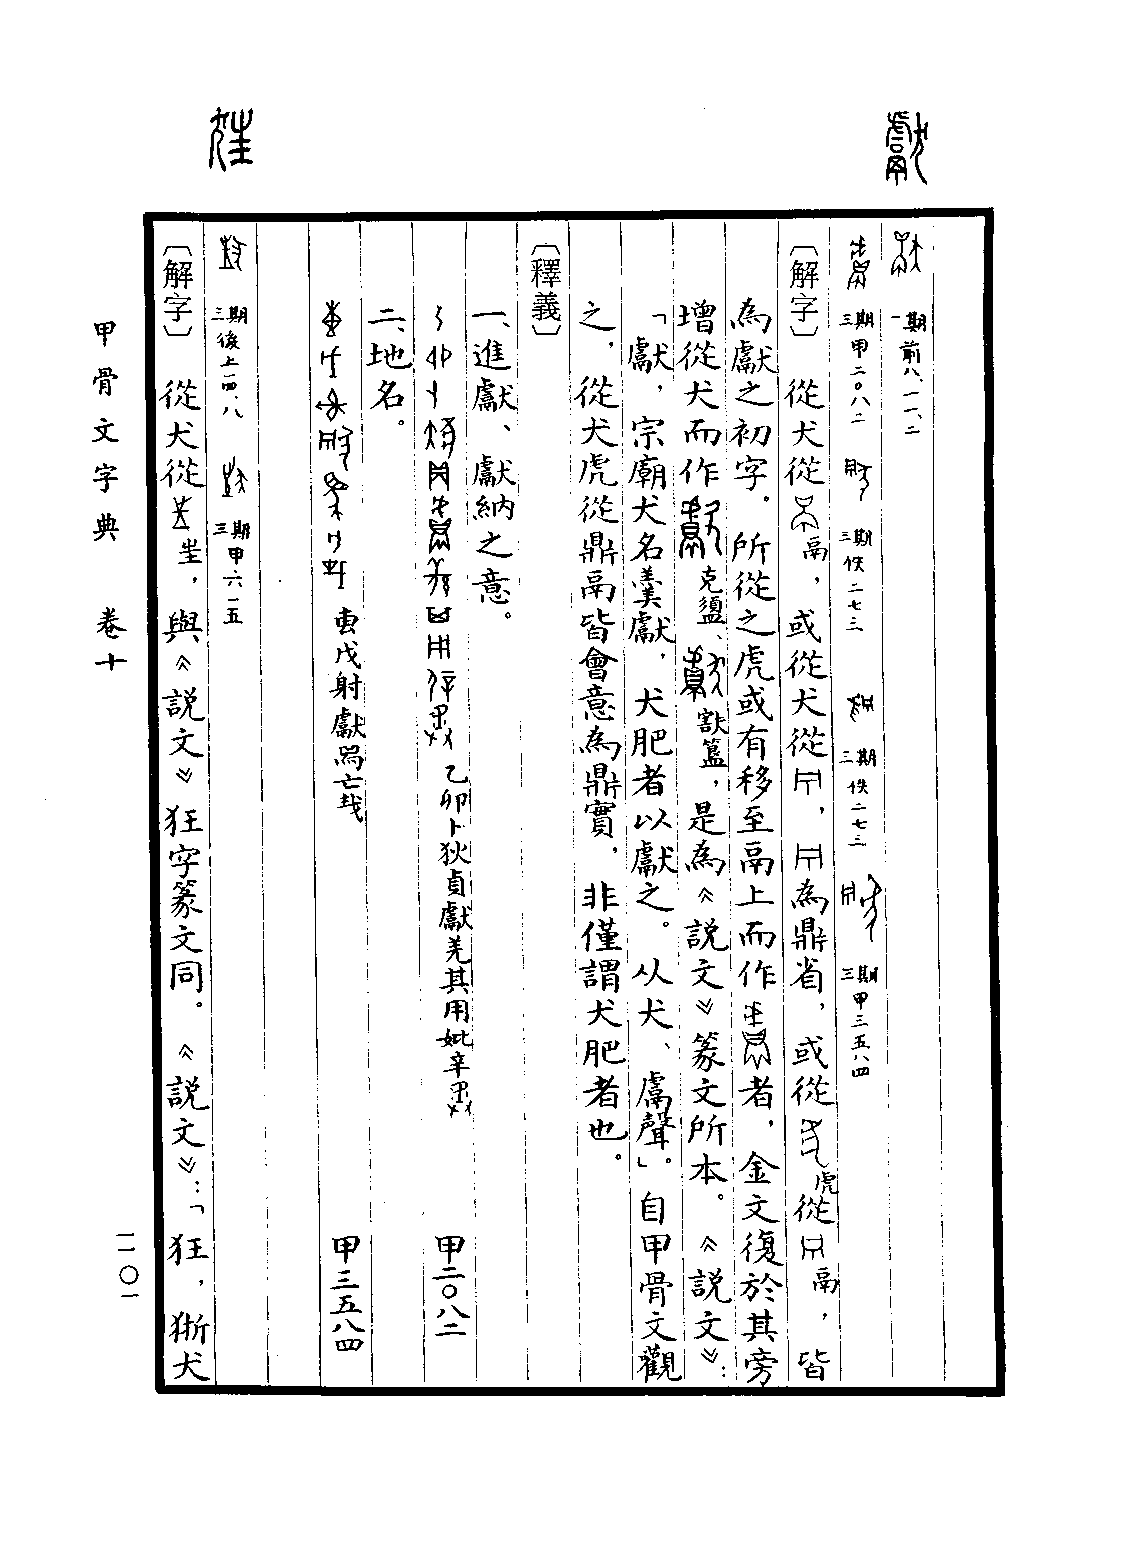 獻
一期 前八.一一.二
三期 甲二〇八二 三期 佚二七三 三期 佚二七三 三期 甲三五八四
〔解字〕 從犬從鬲，或從犬從，為鼎省，或從虎從鬲，皆
為獻之初字。所從之虎或有移至鬲上而作者，金文復於其旁
增從犬而作克盨、簋，是為《說文》篆文所本。《說文》：
「獻，宗廟犬名羹獻，犬肥者以獻之。从犬、鬳聲」。自甲骨文觀
之，從犬虎從鼎鬲皆會意為鼎實，非僅謂犬肥者也。
〔釋義〕
一、進獻、獻納之意。
乙卯卜狄貞獻羌其用妣辛 甲二〇八二
二、地名。
戊射獻亡 甲三五八四
三期 後上一四.八 三期 甲六一五
〔解字〕 從犬從㞷，與《說文》狂字篆文同。《說文》：「狂，狾犬
甲骨文字典 卷十
一一〇一